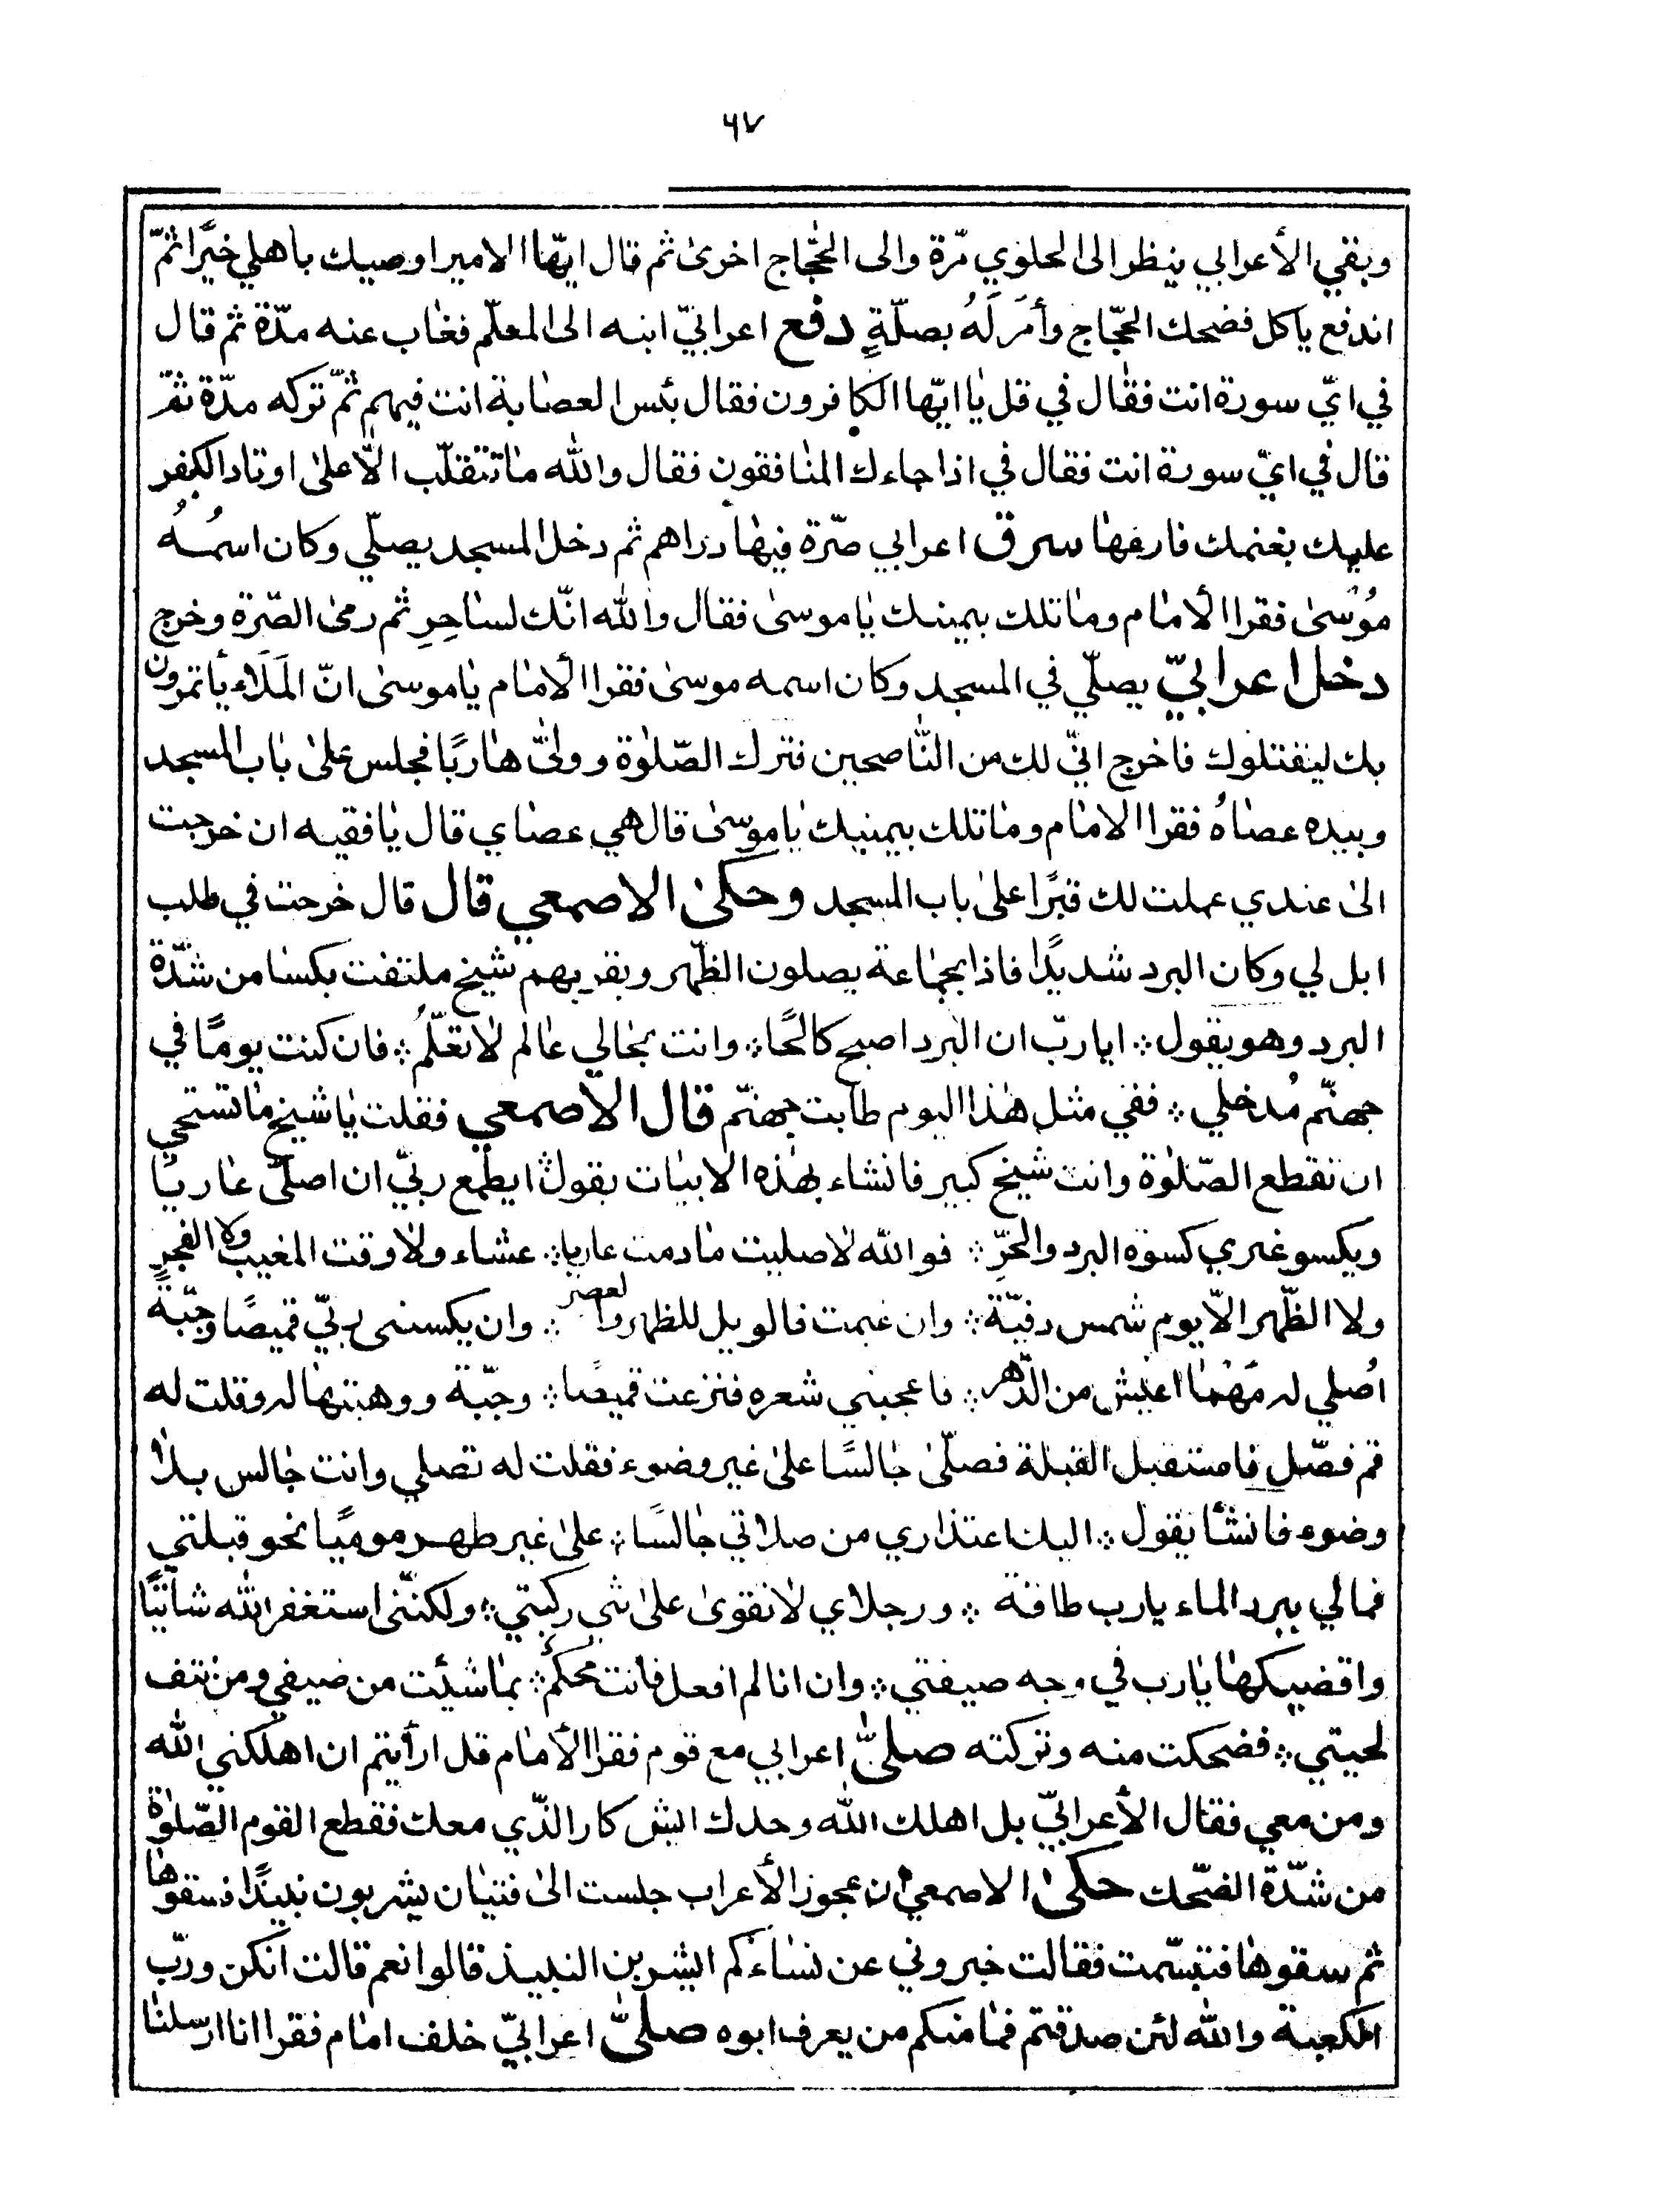 ٦٧
وبقي الأعرابي ينظر الى الحلوي مّرة والى الحجّاج اخرىٰ ثم قال ايّها الامير اوصيك باهلي خيًرا ثمّ
اندفع ياكل فضحك الحجّاج وأمَر لَهُ بصلّةٍ دفع اعرابيّ ابنه الى المعلّم فغاب عنه مدّة ثم قال
في ايّ سورة انت فقال في قل يا ايّها الكافرون فقال بئس العصابة انت فيهم ثمّ تركه مدّة ثمّ
قال في ايّ سورة انت فقال في اذا جاءك المنافقون فقال والله ما تتقلّب الّا علىٰ اوتاد الكفر
عليك بغنمك فارعها سرق اعرابي صّرة فيها دراهم ثم دخل المسجد يصلّي وكان اسمُهُ
مُوْسىٰ فقرا الامام وما تلك بيمينك يا موسىٰ فقال والله انّك لساحِرِ ثم رمىٰ الصّرة وخرج
دخل اعرابيّ يصلّي في المسجد وكان اسمه موسىٰ فقرا الامام يا موسىٰ انّ المَلَاء يأتمرون
بك ليقتلوك فاخرج انّي لك من النّاصحين فترك الصّلوٰة وولّىٰ هاربًا فجلس علىٰ باب المسجد
وبيده عصاهُ فقرا الامام وما تلك بيمينك يا موسىٰ قال هي عصاي قال يا فقيه ان خرجت
الىٰ عندي عملت لك قبرًا علىٰ باب المسجد وحكىٰ الاصمعي قال قال خرجت في طلب
ابل لي وكان البرد شديدًا فاذا بجماعة يصلون الظّهر وبقربهم شيخ ملتفت بكسا من شدّة
البرد وهو يقول ؞ ايا ربّ ان البرد اصبح كالحًا ؞ وانت بحالي عالم لا تعلّمُ ؞ فان كنت يومًا في
جهنّم مُدخلي ؞ ففي مثل هٰذا اليوم طابت جهنّم قال الاصمعي فقلت يا شيخ ما تستحي
ان تقطع الصّلوٰة وانت شيخ كبير فانشاء بهٰذه الابيات يقول ايطمع ربّي ان اصلّي عاريًا
ويكسو غيري كسوه البرد والحرِّ ؞ فوالله لا صليت ما دمت عاريا ؞ عشاء ولا وقت المغيب ولا الفجرِ
ولا الظّهر الّا يوم شمس دفيّة ؞ وان غمت فالويل للظهر والعصر ؞ وان يكسنى ربّي قميصًا وجبّةً
اُصلي له مَهْما اعيش من الدّهر ؞ فاعجبني شعره فنزعت قميصًا ؞ وجبّة ووهبتها له وقلت له
قم فصّل فاستقبل القبلة فصلّىٰ جالسًا علىٰ غير وضوء فقلت له تصلي وانت جالس بلا
وضوء فانشأ يقول ؞ اليك اعتذاري من صلاتي جالسًا ؞ علىٰ غير طهر موميًا نحو قبلتي
فمالي ببرد الماء يا رب طاقة ؞ ورجلاي لا تقوىٰ علىٰ ثني ركبتي ؞ ولكنّنى استغفر الله شاتيًا
واقضيكها يا رب في وجه صيفتي ؞ وان انا لم افعل فانت محكمٌ ؞ بما شئت من ضيفي ومن نتف
لحيتي ؞ فضحكت منه وتركته صلّىٰ اعرابي مع قوم فقرا الأمام قل ارأيتم ان اهلكني الله
ومن معي فقال الأعرابيّ بل اهلك الله وحدك ايش كار الذّي معك فقطع القوم الصّلوٰة
من شدّة الضّحك حكىٰ الاصمعي ان عجوز الأعراب جلست الىٰ فتيان يشربون نبيذًا فسقوها
ثم سقوها فتبسّمت فقالت خبروني عن نساءكم ايشربن النبيذ قالوا نعم قالت انكن وربّ
الكعبة والله لئن صدقتم فما منكم من يعرف ابوه صلّىٰ اعرابيّ خلف امام فقرا انا ارسلنا